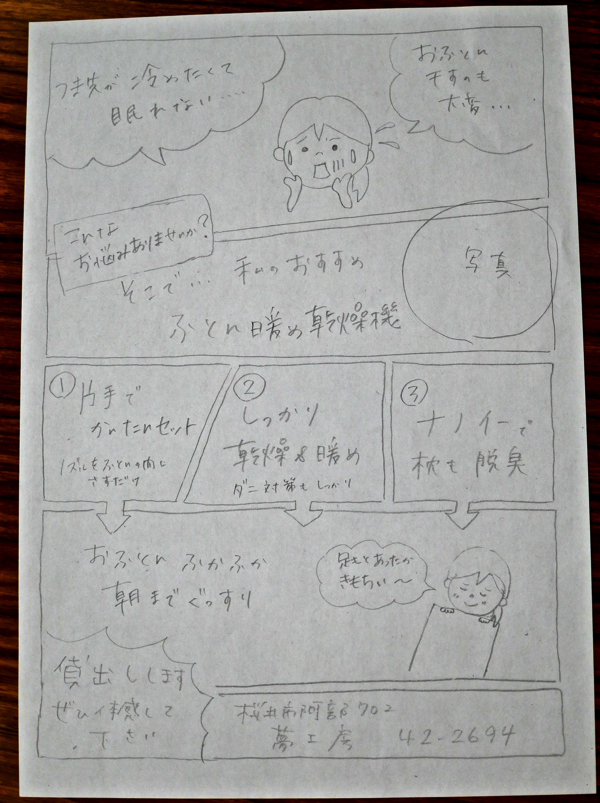 つま先が冷めたくて
眠れない....
おふとん
干すのも
大変...
こんな
お悩みありませんか?
そこで... 私のおすすめ
ふとん暖め乾燥機
写真
① 片手で
かんたんセット
ノズルをふとんの間に
さすだけ
② しっかり
乾燥&暖め
ダニ対策もしっかり
③ ナノイーで
枕も脱臭
おふとん ふかふか
朝までぐっすり
足もとあったか
きもちいい〜
貸出しします
ぜひ体感して
下さい
桜井市阿部702
夢工房 42-2694